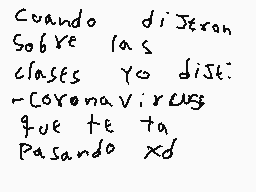 Cuando distron
sobre las
clases yo dist:
-coronavirus
que te ta
pasando xd